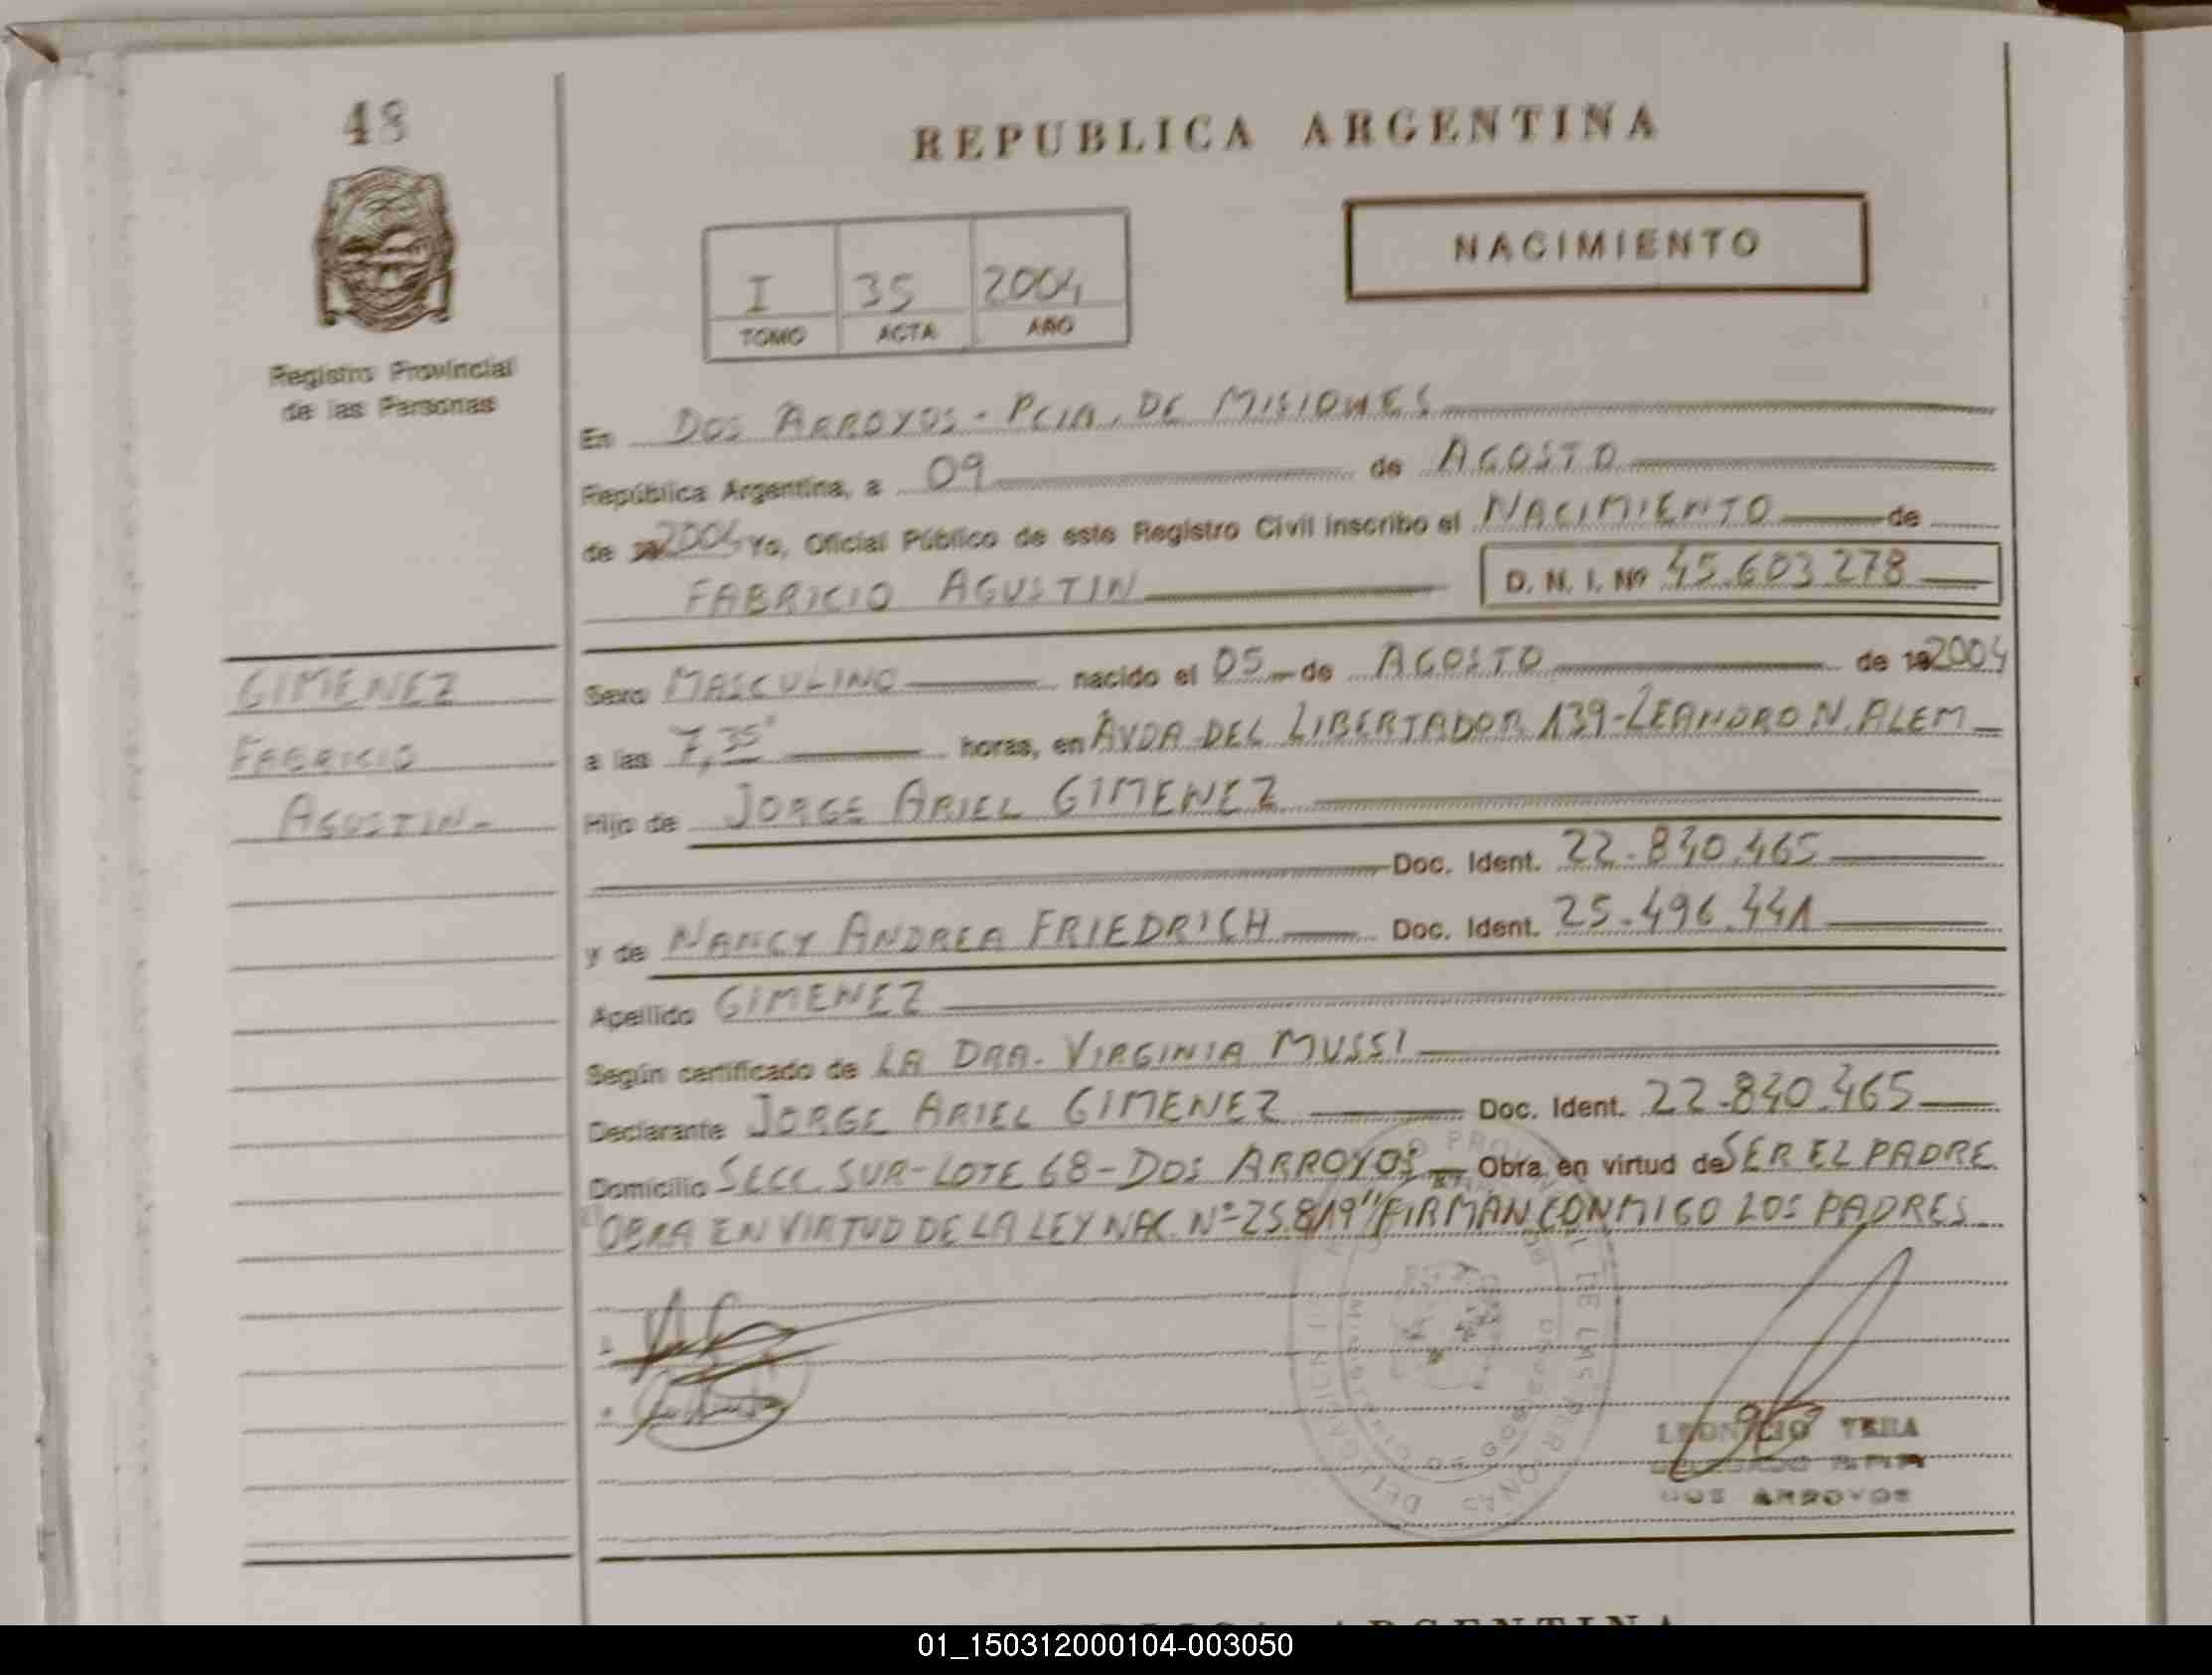 48
REPUBLICA ARGENTINA
NACIMIENTO
I 35 2004
TOMO ACTA AÑO
Registro Provincial
de las Personas
En DOS ARROYOS - PCIA. DE MISIONES
República Argentina, a 09 de AGOSTO
de 2004 Yo, Oficial Público de este Registro Civil inscribo el NACIMIENTO de
FABRICIO AGUSTIN D. N. I. Nº 45.603.278
GIMENEZ
FABRICIO
AGUSTIN-
Sexo MASCULINO nacido el 05 de AGOSTO de 192004
a las 7,35 horas, en AVDA DEL LIBERTADOR 139-LEANDRO N. ALEM
Hijo de JORGE ARIEL GIMENEZ
Doc. Ident. 22.840.465
y de NANCY ANDREA FRIEDRICH Doc. Ident. 25.496.441
Apellido GIMENEZ
Según certificado de LA DRA. VIRGINIA MUSSI
Declarante JORGE ARIEL GIMENEZ Doc. Ident. 22.840.465
Domicilio SECC. SUR-LOTE 68-DOS ARROYOS Obra en virtud de SER EL PADRE
"OBRA EN VIRTUD DE LA LEY NAC. Nº-25.819" FIRMAN CONMIGO LOS PADRES
DE LAS PERSONAS
LEONILIO TERA
DOS ARROYOS
01_150312000104-003050